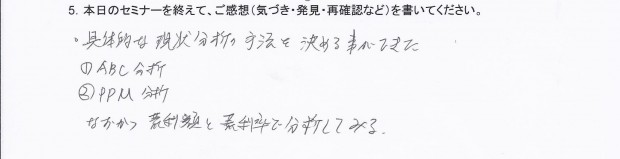 5. 本日のセミナーを終えて、ご感想(気づき・発見・再確認など)を書いてください。
・具体的な現状分析の手法を決める事ができた
①ABC分析
②PPM分析
なおかつ粗利額と粗利率で分析してみる。